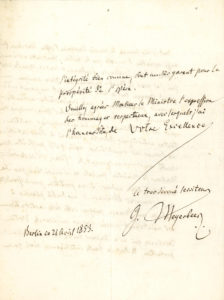 l'intégrité bien connue, sont un sûr garant pour la
prospérité de l'opéra.
Veuillez agréer Monsieur le Ministre l'expression
des hommages respectueux, avec lesquels j'ai
l'honneur d'être de Votre Excellence
le très dévoué serviteur
G. Meyerbeer
Berlin ce 28 Avril 1853.